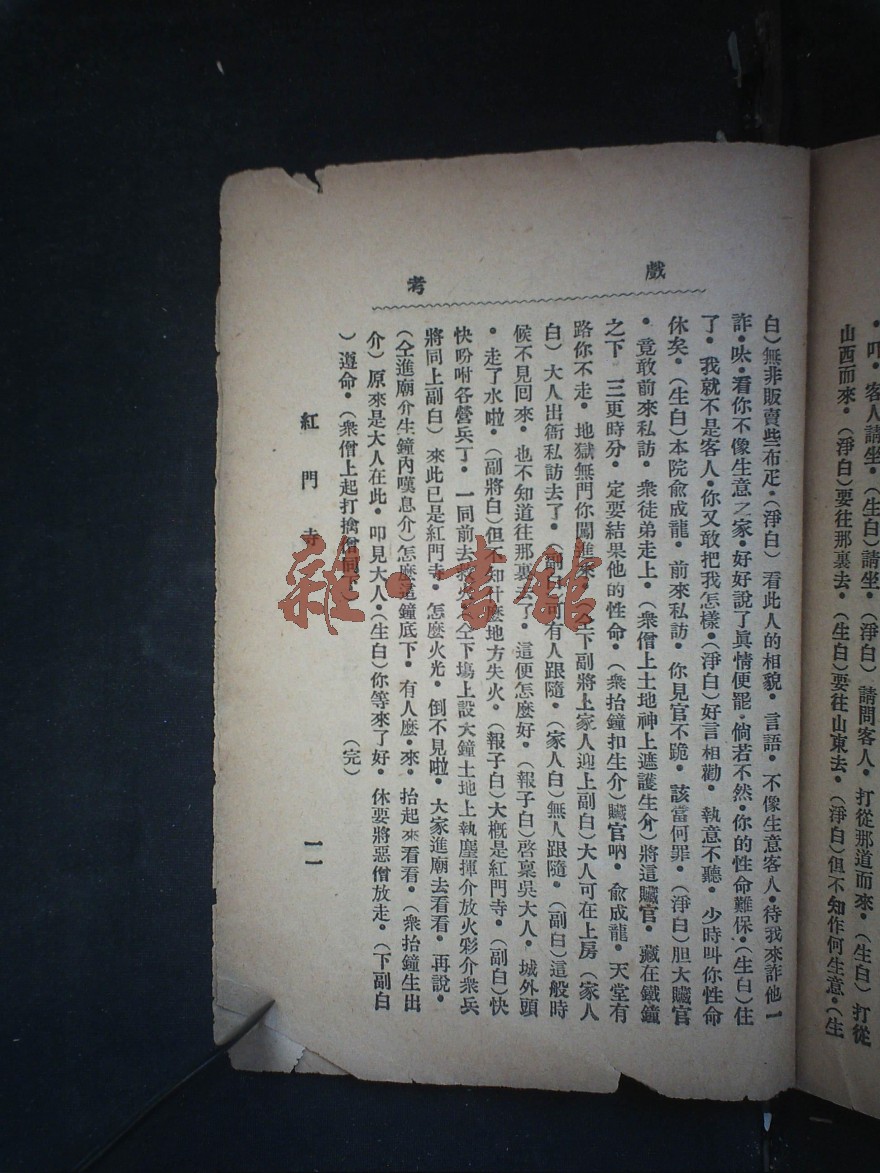 ・叩・客人請坐・（生白）請坐・（淨白）請問客人・打從那道而來・（生白）打從
山西而來・（淨白）要往那裏去・（生白）要往山東去・（淨白）但不知作何生意・（生
戲考
白）無非販賣些布疋・（淨白）看此人的相貌・言語・不像生意客人・待我來詐他一
詐・呔・看你不像生意之家・好好說了眞情便罷・倘若不然・你的性命難保・（生白）住
了・我就不是客人・你又敢把我怎樣・（淨白）好言相勸・執意不聽・少時叫你性命
休矣・（生白）本院俞成龍・前來私訪・你見官不跪・該當何罪・（淨白）胆大贓官
・竟敢前來私訪・衆徒弟走上・（衆僧上土地神上遮護生介）將這贓官・藏在鐵鐘
之下・三更時分・定要結果他的性命・（衆抬鐘扣生介）贓官吶・俞成龍・天堂有
路你不走・地獄無門你闖進來（仝下副將上家人迎上副白）大人可在上房（家人
白）大人出衙私訪去了・（副白）可有人跟隨・（家人白）無人跟隨・（副白）這般時
候不見回來・也不知道往那裏去了・這便怎麼好・（報子白）啓稟吳大人・城外頭
・走了水啦・（副將白）但不知什麼地方失火・（報子白）大概是紅門寺・（副白）快
快吩咐各營兵丁・一同前去救火（仝下塲上設大鐘土地上執塵揮介放火彩介衆兵
將同上副白）來此已是紅門寺・怎麼火光・倒不見啦・大家進廟去看看・再說・
（仝進廟介生鐘內嘆息介）怎麼這鐘底下・有人麼・來・抬起來看看・（衆抬鐘生出
介）原來是大人在此・叩見大人・（生白）你等來了好・休要將惡僧放走・（下副白
）遵命・（衆僧上起打擒僧同下）（完）
紅門寺
一一
雜・書館